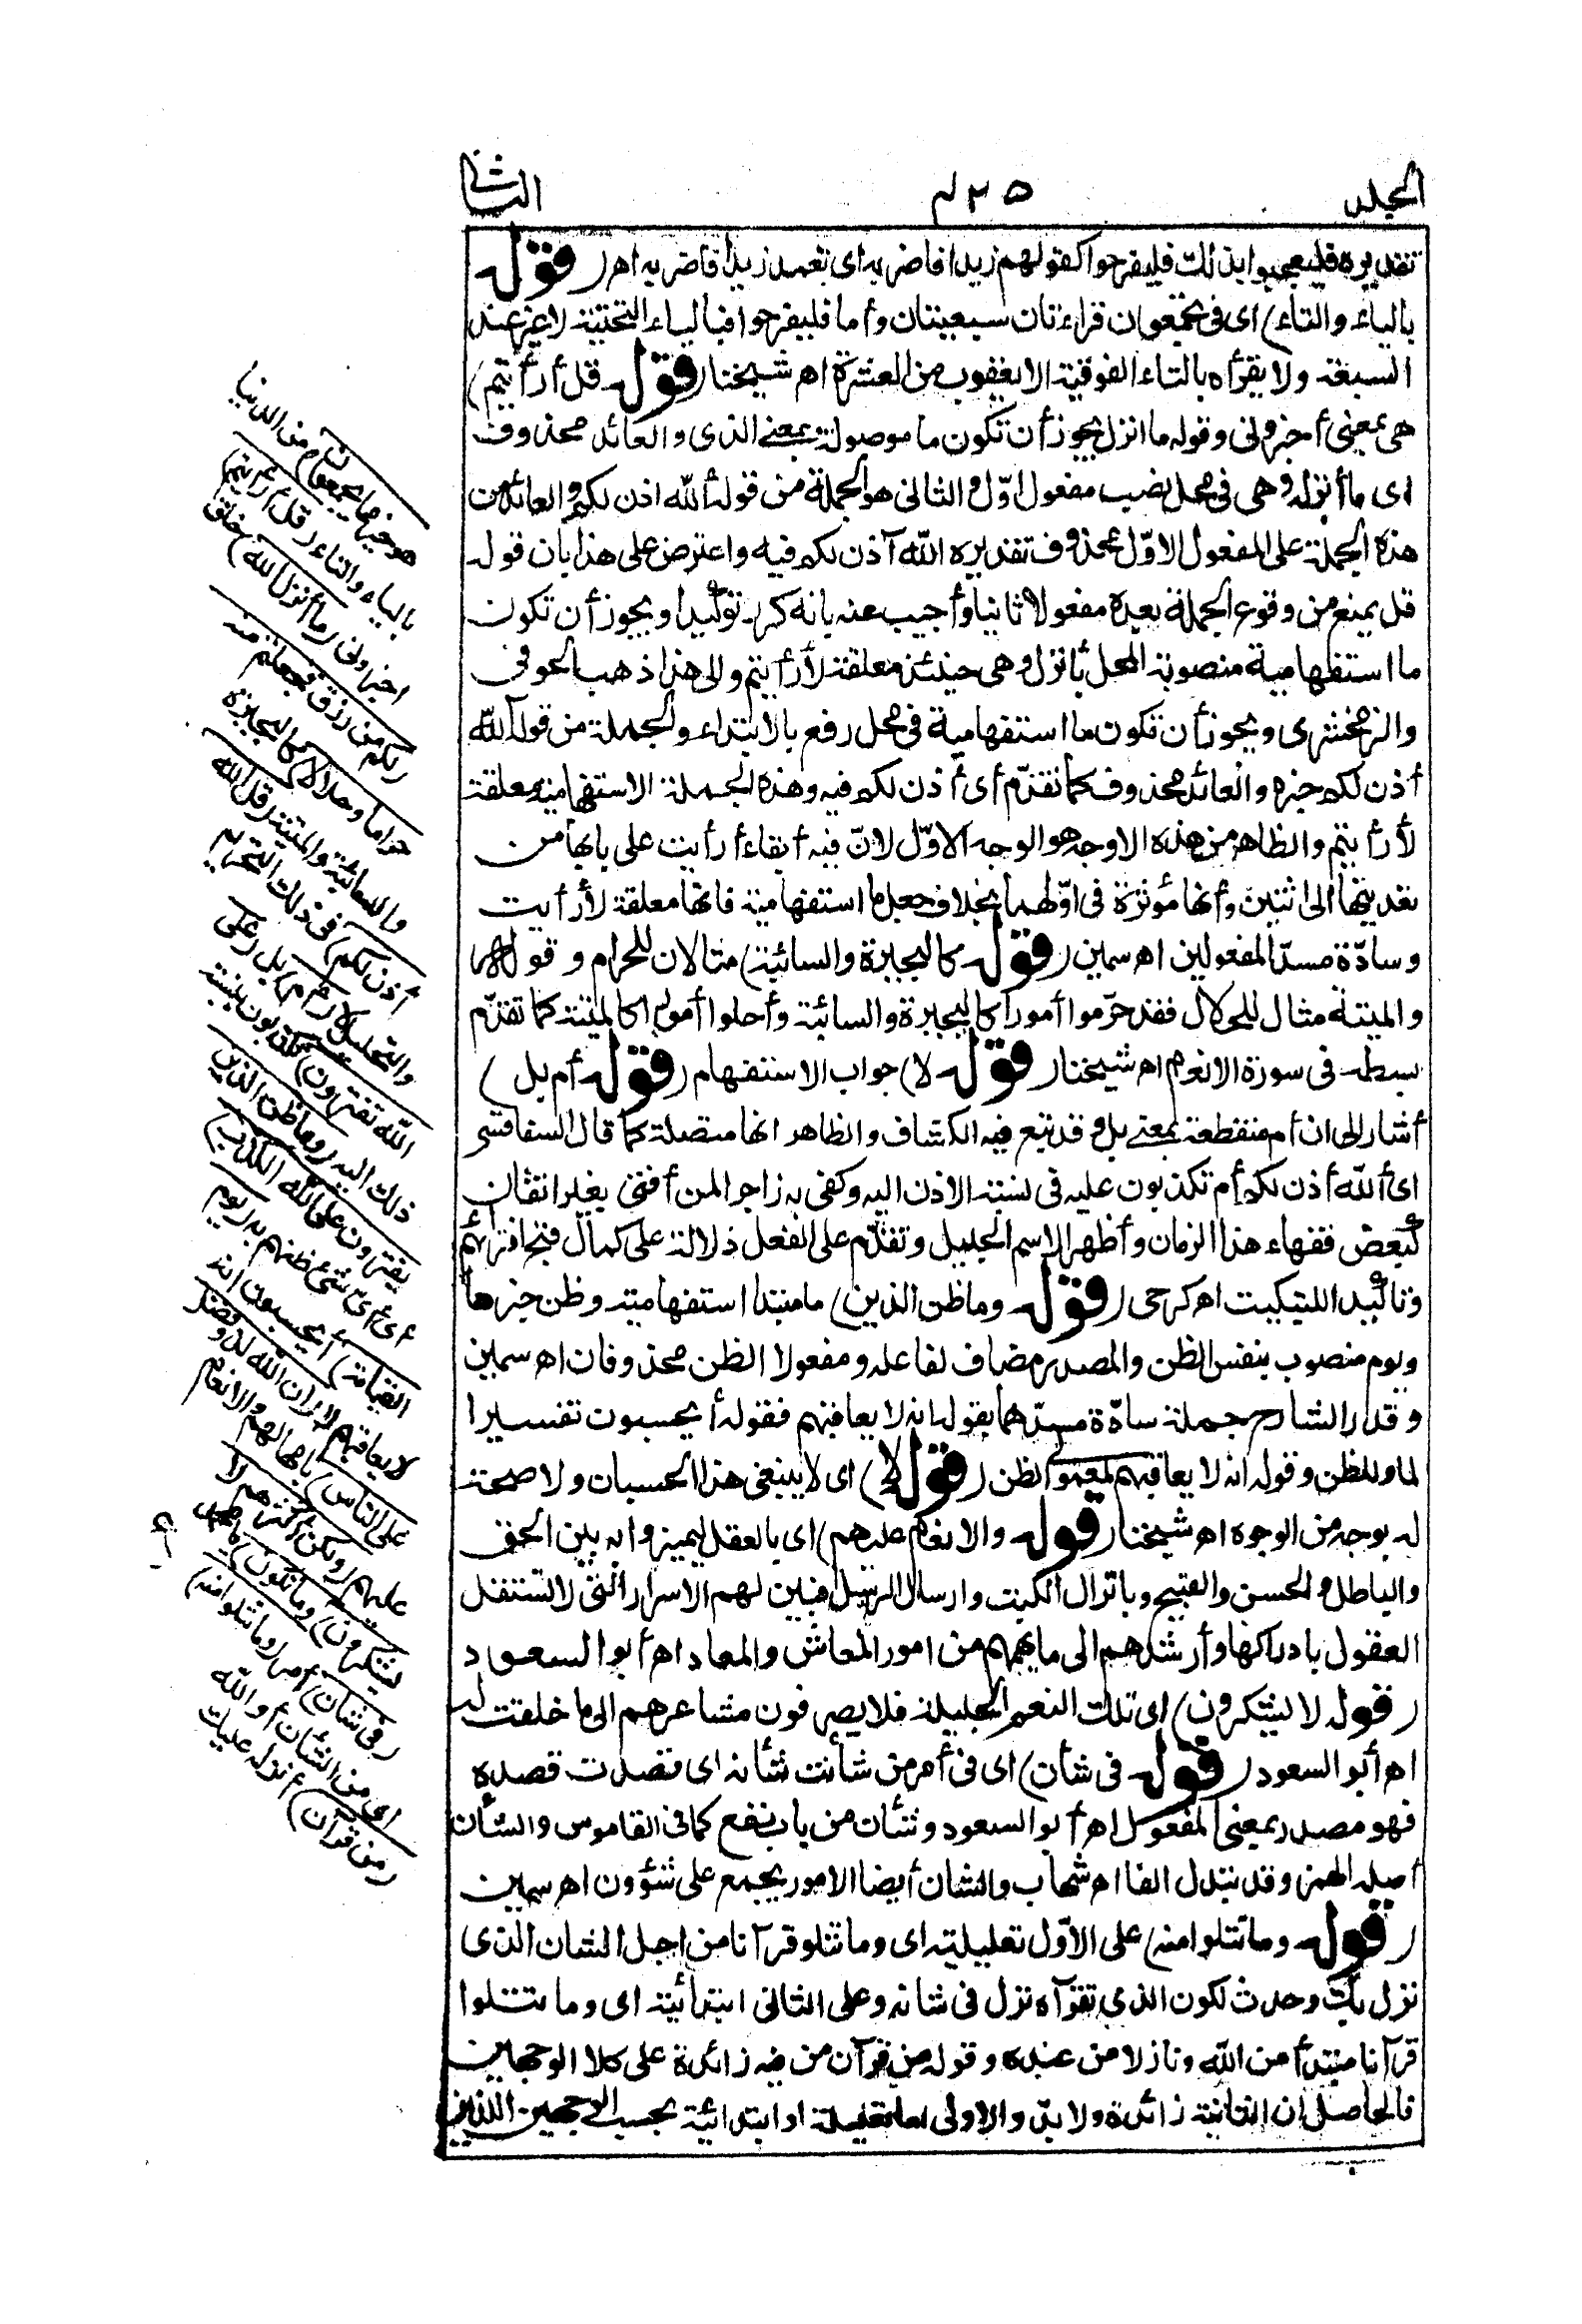 المجلد
٣٢٥
الثانى
تقديره فليعجبوا بذلك فليفرحوا كقولهم زيدا فاضربه اى تعمد زيدا فاضربه اهـ (قوله
بالياء والتاء) اى فى يجمعون قراءتان سبعيتان وأما فليفرحوا فبالياء التحتية لا غير عند
السبعة ولا يقرأه بالتاء الفوقية الا يعقوب من العشرة اهـ شيخنا (قوله قل أرأيتم)
هى بمعنى أخبرونى وقوله ما انزل يجوز أن تكون ما موصولة بمعنى الذى والعائد محذوف
اى ما أنزله وهى فى محل نصب مفعول اوّل والثانى هو الجملة من قوله أالله اذن لكم والعائد من
هذه الجملة على المفعول الاوّل محذوف تقديره الله آذن لكم فيه واعترض على هذا بان قوله
قل يمنع من وقوع الجملة بعده مفعولا ثانيا وأجيب عنه بانه كرر توكيدا ويجوز أن تكون
ما استفهامية منصوبة المحل بأنزل وهى حينئذ معلقة لأرأيتم والى هذا ذهب الحوفى
والزمخشرى ويجوز أن تكون ما استفهامية فى محل رفع بالابتداء والجملة من قوله آلله
أذن لكم خبره والعائد محذوف كما تقدّم أى أذن لكم فيه وهذه الجملة الاستفهامية معلقة
لأرأيتم والظاهر من هذه الاوجه هو الوجه الاوّل لانّ فيه أبقاء أرأيت على بابها من
تعديتها الى اثنين وأنها مؤثرة فى اوّلهما بخلاف جعل ما استفهامية فانها معلقة لأرأيت
وسادّة مسدّ المفعولين اهـ سمين (قوله كالبحيرة والسائبة) مثالان للحرام وقوله
والميتة مثال للحلال فقد حرّموا أمورا كالبحيرة والسائبة وأحلوا أمورا كالميتة كما تقدّم
بسطه فى سورة الانعام اهـ شيخنا (قوله لا) جواب الاستفهام (قوله أم بل)
أشار الى ان أم منقطعة بمعنى بل وقد تبع فيه الكشاف والظاهر انها متصلة كما قال السفاقسى
اى أالله أذن لكم أم تكذبون عليه فى نسبة الاذن اليه وكفى به زاجرا لمن أفتى بغير اتقان
كبعض فقهاء هذا الزمان وأظهر الاسم الجليل وتقدّم على الفعل دلالة على كمال قبح افترائهم
وتأكيد التبكيت اهـ كرخى (قوله وما ظن الذين) ما مبتدا استفهامية وظن خبرها
ويوم منصوب بنفس الظن والمصدر مضاف لفاعله ومفعولا الظن محذوفان اهـ سمين
وقدر الشارح جملة سادّة مسدّهما بقوله انه لا يعاقبهم فقوله أيحسبون تفسيرا
لما وللظن وقوله انه لا يعاقبهم لمعمولى الظن (قوله لا) اى لا ينبغى هذا الحسبان ولا صحة
له بوجه من الوجوه اهـ شيخنا (قوله والانعام عليهم) اى بالعقل يميزوا به بين الحق
والباطل والحسن والقبيح وبانزال الكتب وارسال الرسل فبين لهم الاسرار التى لا تستقل
العقول بادراكها وأرشدهم الى ما يهمهم من امور المعاش والمعاد اهـ أبو السعود
(قوله لا يشكرون) اى تلك النعم الجليلة فلا يصرفون مشاعرهم الى ما خلقت له
اهـ أبو السعود (قوله فى شأن) اى فى أمر من شأنت شأنه اى قصدت قصده
فهو مصدر بمعنى المفعول اهـ أبو السعود وشأن من باب نفع كما فى القاموس والشأن
أصله الهمز وقد تبدل الفا اهـ شهاب والشان أيضا الامور يجمع على شؤون اهـ سمين
(قوله وما تتلوا منه) على الاوّل تعليلية اى وما تتلو قرآنا من اجل الشان الذى
نزل بك وحدث لكون الذى تقرآه نزل فى شانه وعلى الثانى ابتدائية اى وما تتلوا
قرآنا مبتدأ من الله ونازلا من عنده وقوله من قرآن من فيه زائدة على كلا الوجهين
فالحاصل ان الثانية زائدة ولا بدّ والاولى اما تعليلية او ابتدائية بحسب الوجهين اللذين
هو خير مما يجمعون) من الدنيا
بالياء والتاء (قل أرأيتم)
اخبرونى (ما أنزل الله) خلق
لكم من رزق فجعلتم منه
حراما وحلالا) كالبحيرة
والسائبة والميتة (قل آلله
أذن لكم) فى ذلك التحريم
والتحليل لا (أم) بل (على
الله تفترون) تكذبون بنسبة
ذلك اليه (وما ظن الذين
يفترون على الله الكذب)
أى أىّ شئ ظنهم به (يوم
القيامة) أيحسبون انه
لا يعاقبهم لا (ان الله لذو فضل
على الناس) بامهالهم والانعام
عليهم (ولكن أكثرهم لا
يشكرون) (وما تكون) يا محمد
(فى شان) أمر (وما تتلوا منه)
اى من الشأن أو الله
(من قرآن) أنزله عليك